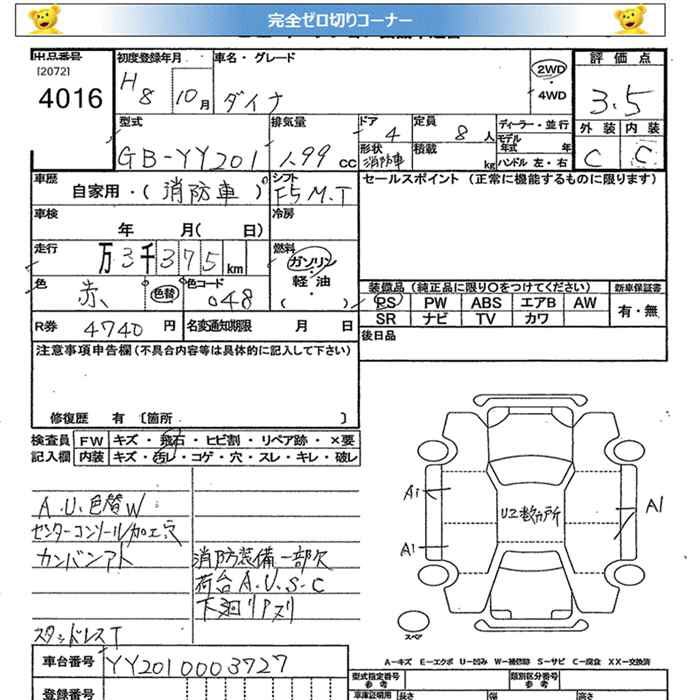 完全ゼロ切りコーナー
出品番号
[2072]
4016
初度登録年月
H8 10月
車名・グレード
ダイナ
2WD
・
4WD
評価点
3.5
外装 内装
C C
型式
GB-YY201
排気量
1.99 CC
ドア
4
形状
消防車
定員
8人
積載
kg
ディーラー・並行
モデル年式 年
ハンドル 左・右
車歴
自家用・(消防車)
シフト
F5 M.T
車検
年 月( 日)
冷房
走行
万3千375km
燃料
ガソリン
・
軽油
( )
色
赤
色替
色コード
048
R券 4740円
名変通知期限 月 日
セールスポイント (正常に機能するものに限ります)
装備品(純正品に限り○をつけてください)
PS PW ABS エアB AW
SR ナビ TV カワ
新車保証書
有・無
後日品
注意事項申告欄(不具合内容等は具体的に記入して下さい)
修復歴 有 〔箇所 〕
検査員記入欄
FW キズ・飛石・ヒビ割・リペア跡・×要
内装 キズ・汚レ・コゲ・穴・スレ・キレ・破レ
A.U.色替W
センターコンソール加工穴
カンバンアト
消防装備一部欠
荷台A.U.S.C
下廻リサヌリ
スタッドレスT
A1
A1
U2数ヵ所
A1
スペア
A-キズ E-エクボ U-凹み W-補修跡 S-サビ C-腐食 XX-交換済
車台番号 YY2010003727
登録番号
型式指定番号
参考
類別区分番号
参考
車庫証明用
長さ
幅
高さ